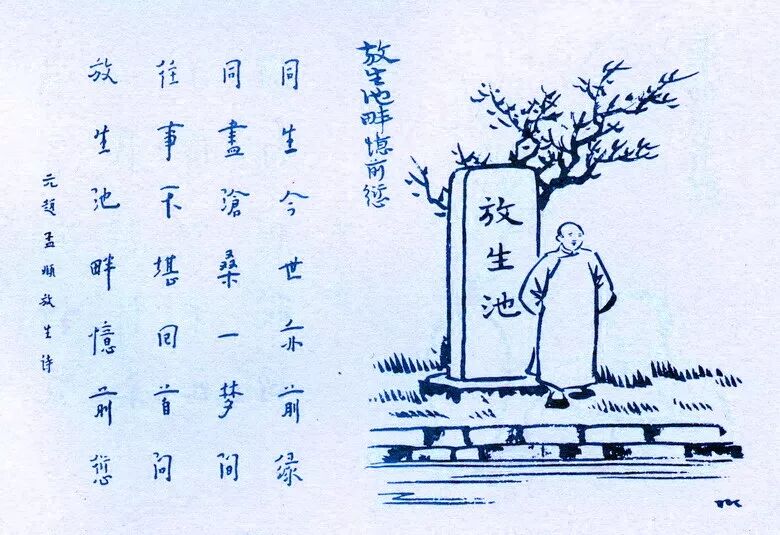 放生池
放生池畔憶前愆
同生今世亦前緣
同盡滄桑一夢間
往事不堪回首問
放生池畔憶前愆
元趙孟頫放生詩
TK